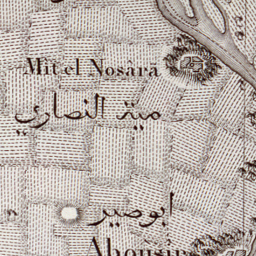 Mît el Nosârä
25
ميت النصاري
ابوصير
Abousir